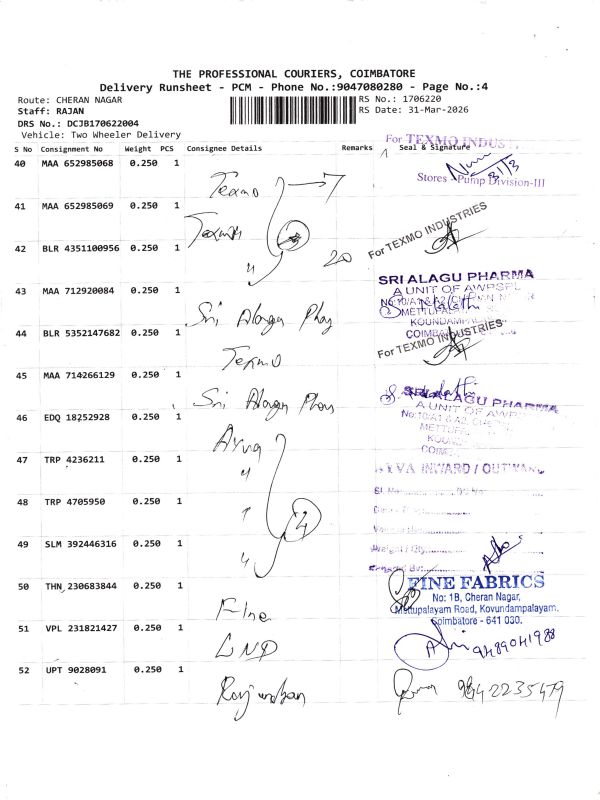 THE PROFESSIONAL COURIERS, COIMBATORE
Delivery Runsheet - PCM - Phone No.:9047080280 - Page No.:4
Route: CHERAN NAGAR
RS No.: 1706220
Staff: RAJAN
RS Date: 31-Mar-2026
DRS No.: DCJB170622004
Vehicle: Two Wheeler Delivery
S No Consignment No Weight PCS Consignee Details Remarks Seal & Signature
For TEXMO INDUST
40 MAA 652985068 0.250 1
Texmo
31/3
Stores - Pump Division-III
41 MAA 652985069 0.250 1
Texmo
For TEXMO INDUSTRIES
42 BLR 4351100956 0.250 1
20
43 MAA 712920084 0.250 1
Sri Alagu Phar
SRI ALAGU PHARMA
A UNIT OF AWPSPL
METTUPALAYAM
KOUNDAMPA
COIMBA
44 BLR 5352147682 0.250 1
Texmo
For TEXMO INDUSTRIES
45 MAA 714266129 0.250 1
Sri Alagu Phar
SRI ALAGU PHARMA
A UNIT OF AWP
No:10/A1 & A2, CHERAN
METTUP
KOUN
COIM
46 EDQ 18252928 0.250 1
Arva
47 TRP 4236211 0.250 1
"
ARVA INWARD / OUTWARD
48 TRP 4705950 0.250 1
"
4
49 SLM 392446316 0.250 1
"
Weight / Qty
50 THN 230683844 0.250 1
Fine
FINE FABRICS
No: 1B, Cheran Nagar,
Mettupalayam Road, Kovundampalayam.
Coimbatore - 641 030.
51 VPL 231821427 0.250 1
LNP
9489041988
52 UPT 9028091 0.250 1
9842235479